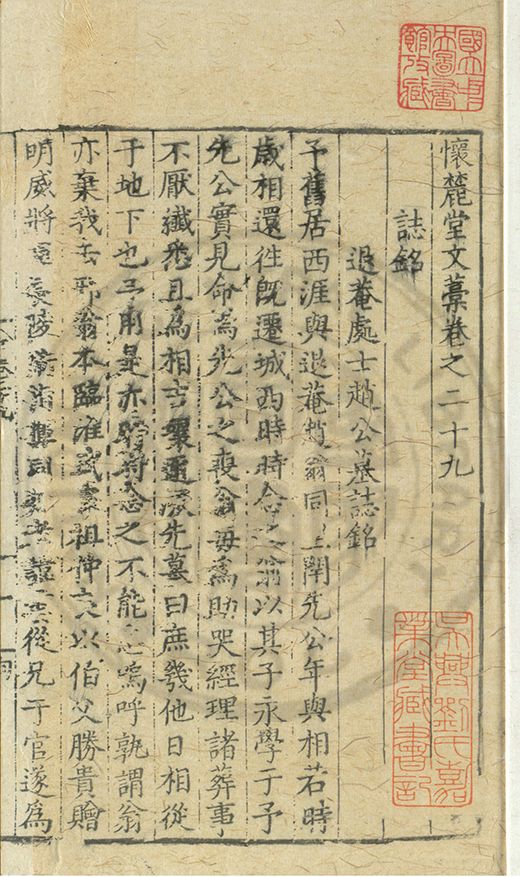 懷麓堂文藁卷之二十九
誌銘
退菴處士趙公墓誌銘
予舊居西涯與退菴趙翁同里閈先公年與相若時
歲相還往旣遷城西時時念之翁以其子永學于予
先公實見命為先公之喪翁毋為助哭經理諸葬事
不厭纖悉且為相吉先墓曰庶幾他日相從
于地下也予用是亦時時念之不能忘嗚呼孰謂翁
亦棄我去邪翁本臨淮武祖仲文以伯父勝貴贈
明威將軍陵衛同從兄于官遂為
國立中央圖書館收藏
吳興劉氏嘉業堂藏書記